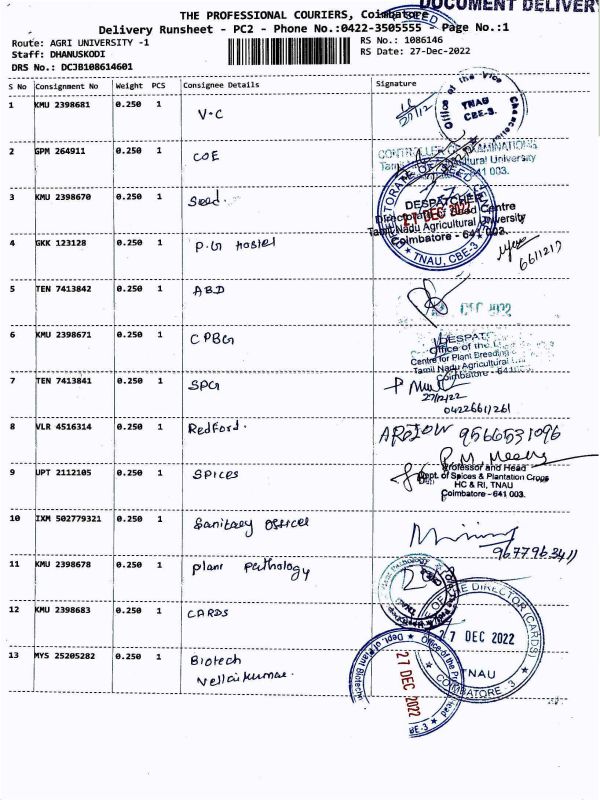 DOCUMENT DELIVERY
THE PROFESSIONAL COURIERS, Coimbatore
Delivery Runsheet - PC2 - Phone No.:0422-3505555 - Page No.:1
Route: AGRI UNIVERSITY -1
RS No.: 1086146
Staff: DHANUSKODI
RS Date: 27-Dec-2022
DRS No.: DCJB108614601
S No Consignment No Weight PCS Consignee Details Signature
1 KMU 2398681 0.250 1 V.C
27/12
Office of the Vice Chancellor
TNAU
CBE-3.
2 GPM 264911 0.250 1 COE
CONTROLLER OF EXAMINATIONS
Tamil Nadu Agricultural University
641 003.
3 KMU 2398670 0.250 1 Seed.
DESPATCHER
27 DEC 2022
Directorate of Seed Centre
Tamil Nadu Agricultural University
Coimbatore - 641 003.
TNAU, CBE-3
4 GKK 123128 0.250 1 P.G Hostel
6611217
5 TEN 7413842 0.250 1 ABD
DEC 2022
6 KMU 2398671 0.250 1 CPBG
DESPAT
Office of the
Centre for Plant Breeding
Tamil Nadu Agricultural
Coimbatore - 641
7 TEN 7413841 0.250 1 SPG
27/12/22
04226611261
8 VLR 4516314 0.250 1 Redford.
9566531096
9 UPT 2112105 0.250 1 SPICES
Professor and Head
Dept. of Spices & Plantation Crops
HC & RI, TNAU
Coimbatore - 641 003.
10 IXM 502779321 0.250 1 Sanitary Officer
9677963411
11 KMU 2398678 0.250 1 Plant Pathology
12 KMU 2398683 0.250 1 CARDS
THE DIRECTOR (CARDS)
27 DEC 2022
TNAU
COIMBATORE - 3
13 MYS 25205282 0.250 1 Biotech
Vellaikumar.
Dept. of Plant Biotech
27 DEC 2022